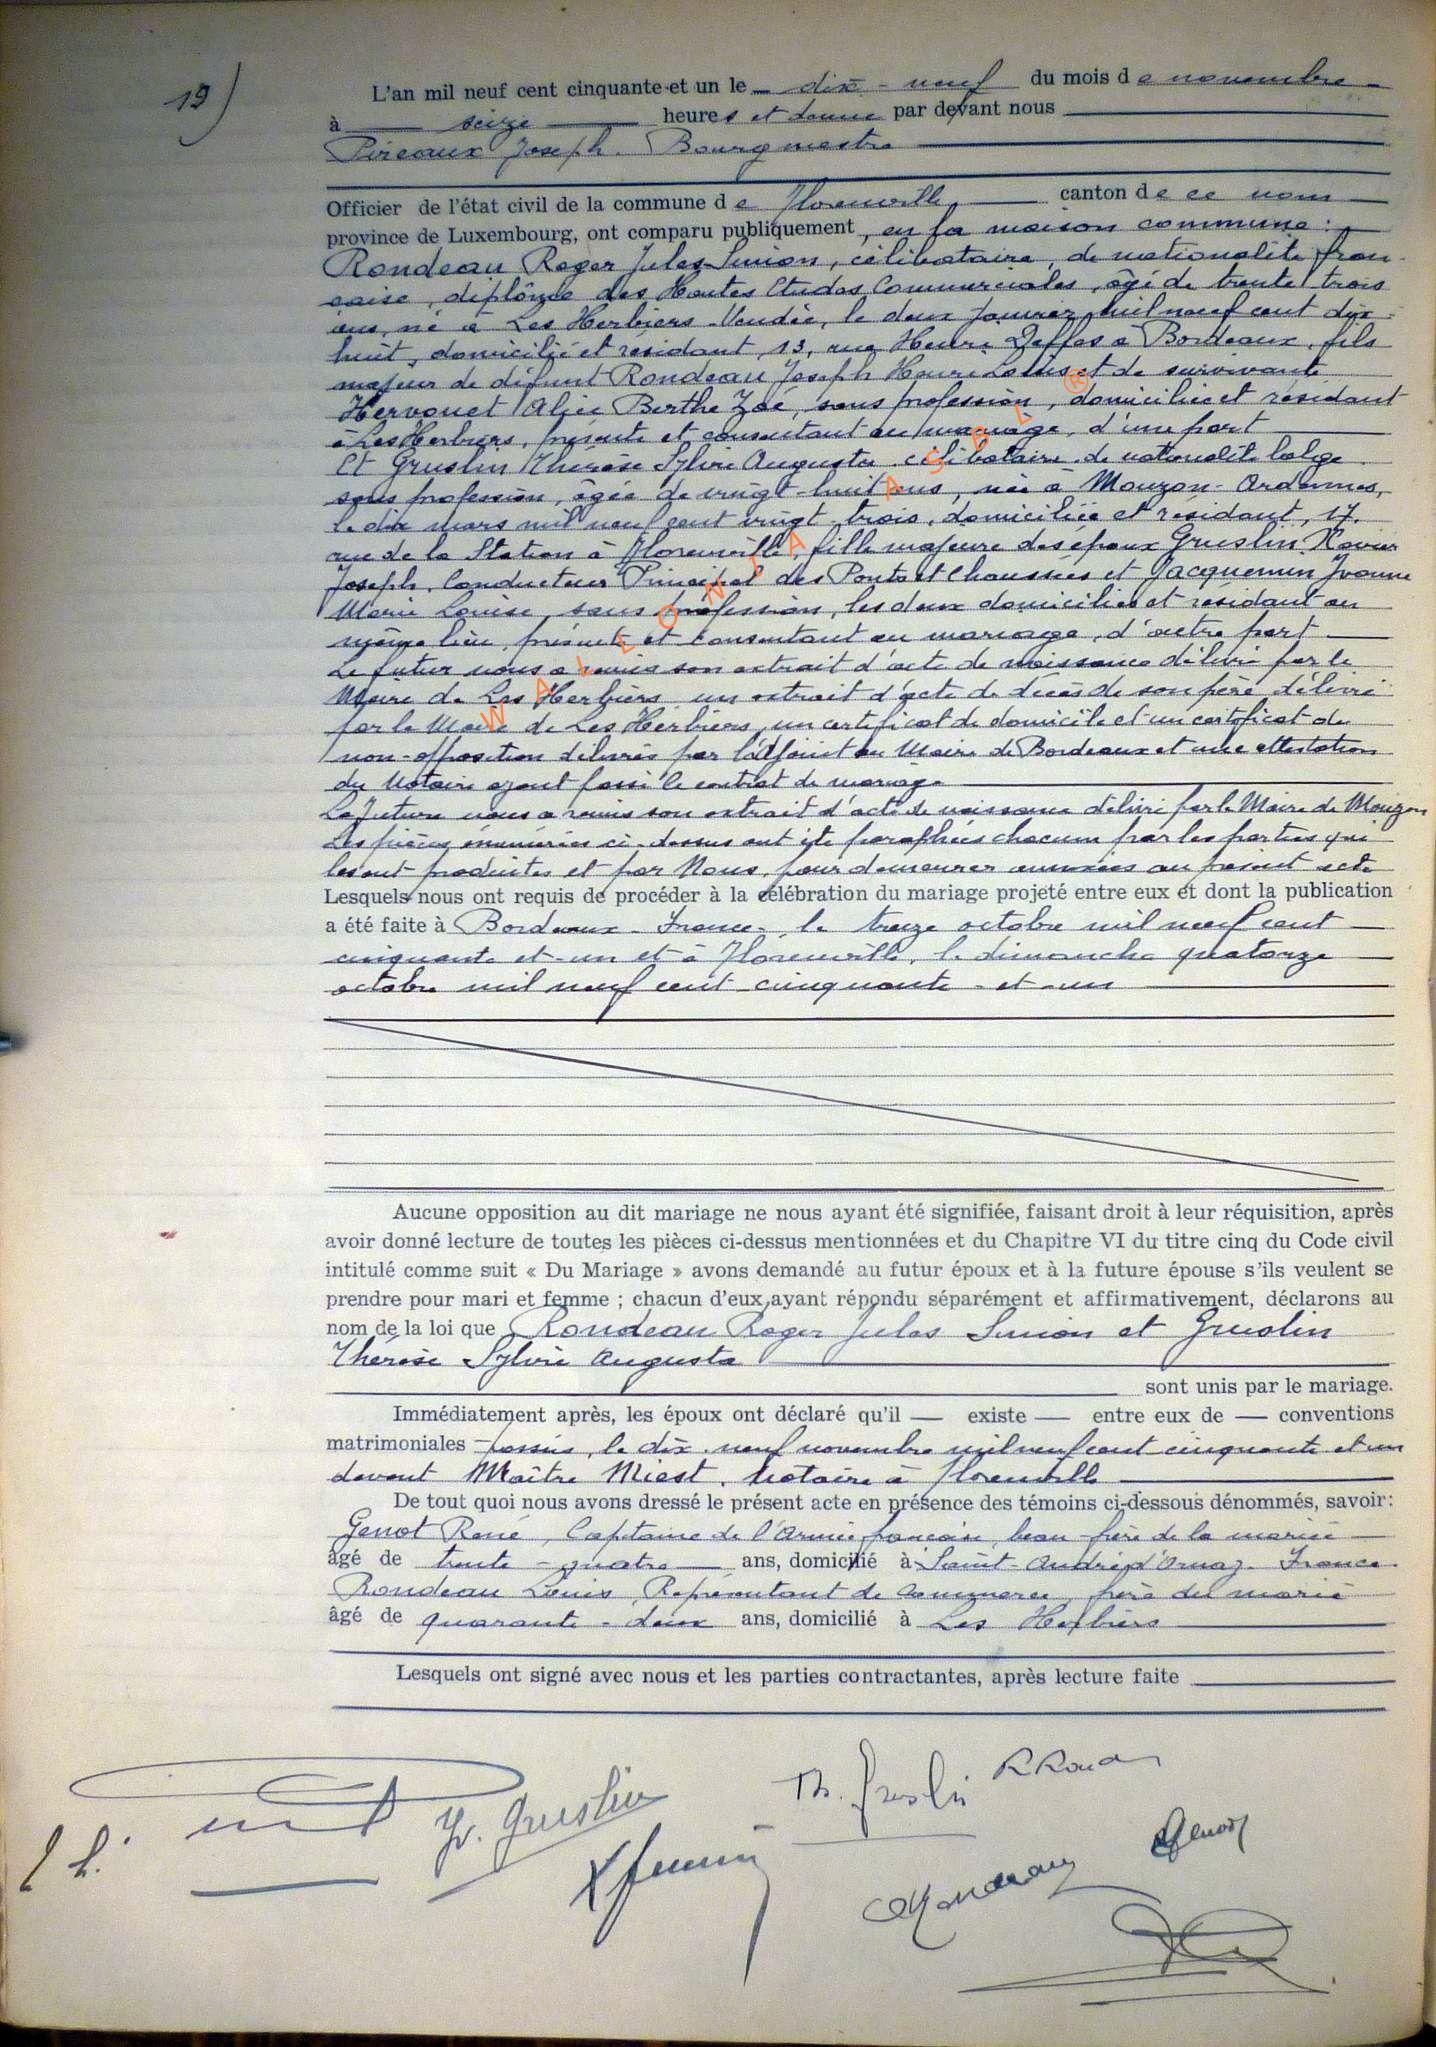 19)
L'an mil neuf cent cinquante et un le dix-neuf du mois de novembre
à seize heures et demie par devant nous
Pireaux Joseph. Bourgmestre
Officier de l'état civil de la commune de Florenville, canton de ce nom
province de Luxembourg, ont comparu publiquement, en la maison commune :
Rondeau Roger Jules Simon, célibataire, de nationalité fran-
çaise, diplômé des Hautes Etudes Commerciales, âgé de trente trois
ans, né à Les Herbiers-Vendée, le deux janvier mil neuf cent dix-
huit, domicilié et résidant, 13, rue Henri Deffes à Bordeaux, fils
majeur de défunt Rondeau Joseph Henri Louis et de survivante
Hervouet Alice Berthe Zoé, sans profession, domiciliée et résidant
à Les Herbiers, présente et consentant au mariage, d'une part
Et Gruslin Thérèse Sylvie Augusta, célibataire, de nationalité belge
sans profession, âgée de vingt-huit ans, née à Mouzon-Ardennes,
le dix mars mil neuf cent vingt-trois, domiciliée et résidant, 17,
rue de la Station à Florenville, fille majeure des époux Gruslin Xavier
Joseph, Conducteur Principal des Ponts et Chaussées et Jacquemin Yvonne
Marie Louise, sans profession, les deux domiciliés et résidant au
même lieu, présents et consentant au mariage, d'autre part
Le futur nous a remis son extrait d'acte de naissance délivré par le
Maire de Les Herbiers, un extrait d'acte de décès de son père délivré
par le Maire de Les Herbiers, un certificat de domicile et un certificat de
non-opposition délivrés par l'adjoint au Maire de Bordeaux et une attestation
du Notaire ayant passé le contrat de mariage
La future nous a remis son extrait d'acte de naissance délivré par le Maire de Mouzon
Les pièces énumérées ci-dessus ont été paraphées chacune par les parties qui
les ont produites et par Nous, pour demeurer annexées au présent acte
Lesquels nous ont requis de procéder à la célébration du mariage projeté entre eux et dont la publication
a été faite à Bordeaux-France, le treize octobre mil neuf cent
cinquante-et-un et à Florenville, le dimanche quatorze
octobre mil neuf cent cinquante-et-un
Aucune opposition au dit mariage ne nous ayant été signifiée, faisant droit à leur réquisition, après
avoir donné lecture de toutes les pièces ci-dessus mentionnées et du Chapitre VI du titre cinq du Code civil
intitulé comme suit « Du Mariage » avons demandé au futur époux et à la future épouse s'ils veulent se
prendre pour mari et femme ; chacun d'eux ayant répondu séparément et affirmativement, déclarons au
nom de la loi que Rondeau Roger Jules Simon et Gruslin
Thérèse Sylvie Augusta
sont unis par le mariage.
Immédiatement après, les époux ont déclaré qu'il — existe — entre eux de — conventions
matrimoniales passées, le dix-neuf novembre mil neuf cent cinquante et un
devant Maître Miest, Notaire à Florenville
De tout quoi nous avons dressé le présent acte en présence des témoins ci-dessous dénommés, savoir :
Genot René, Capitaine de l'Armée française, beau-frère de la mariée
âgé de trente-quatre ans, domicilié à Saint-André France
Rondeau Représentant de commerce, frère du marié
âgé de quarante-deux ans, domicilié à Les Herbiers
Lesquels ont signé avec nous et les parties contractantes, après lecture faite
Th. Gruslin
Yv. Gruslin
Genot
WALLONIA ASBL ®